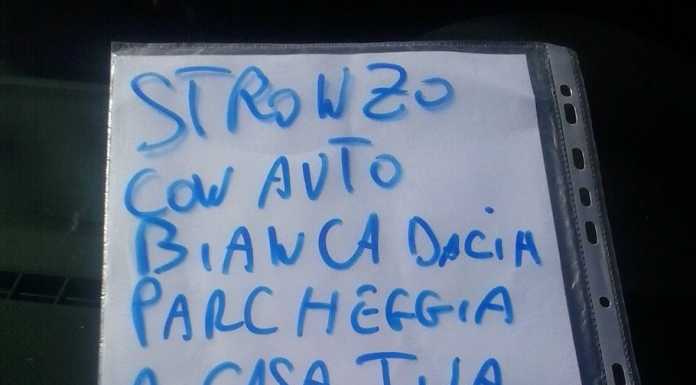 STRONZO
CON AUTO
BIANCA DACIA
PARCHEGGIA
A CASA TUA